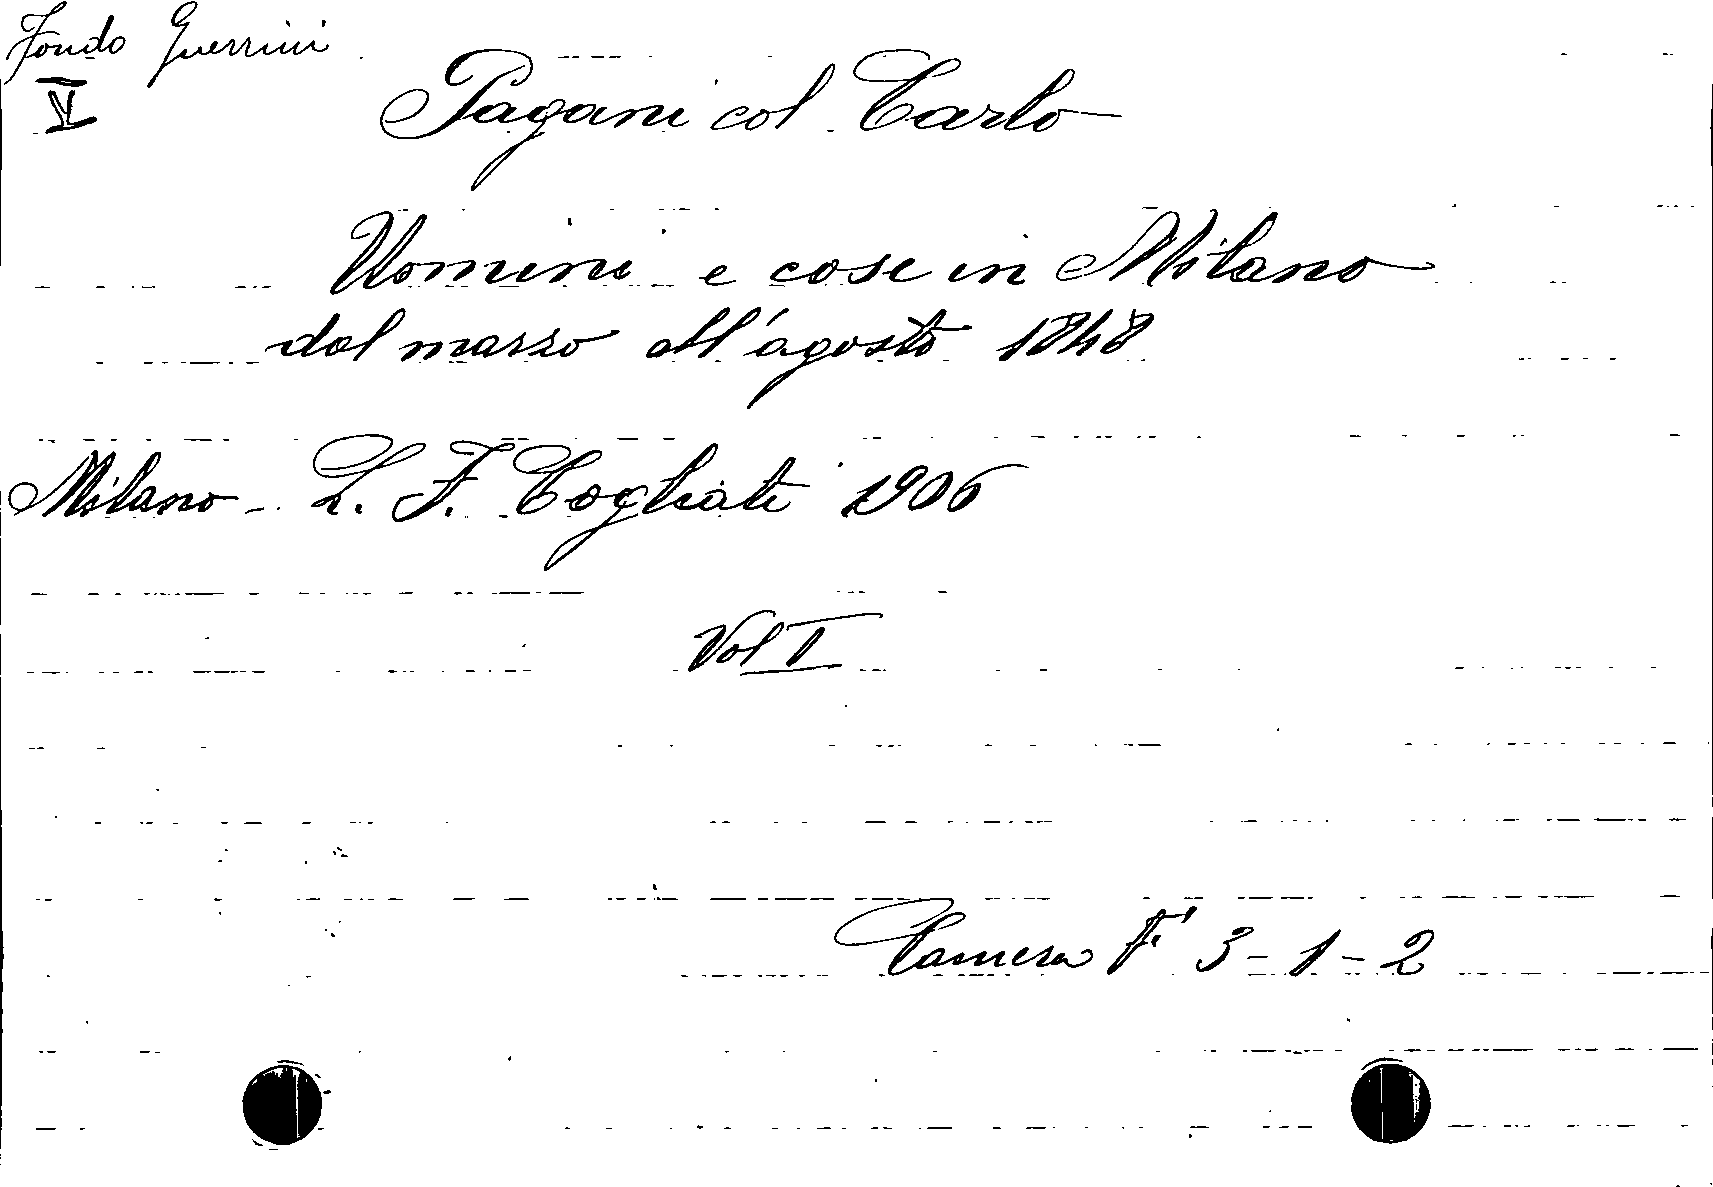 Fondo Guerrini
V
Pagani col Carlo
Uomini e cose in Milano
dal marzo all'agosto 1848
Milano - L. F. Cogliati 1906
Vol I
Camera F' 3-1-2